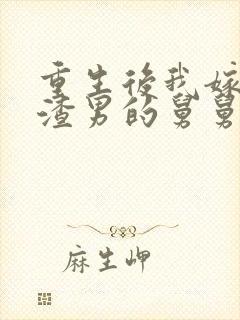 重生後我嫁
渣男的舅舅
麻生岬